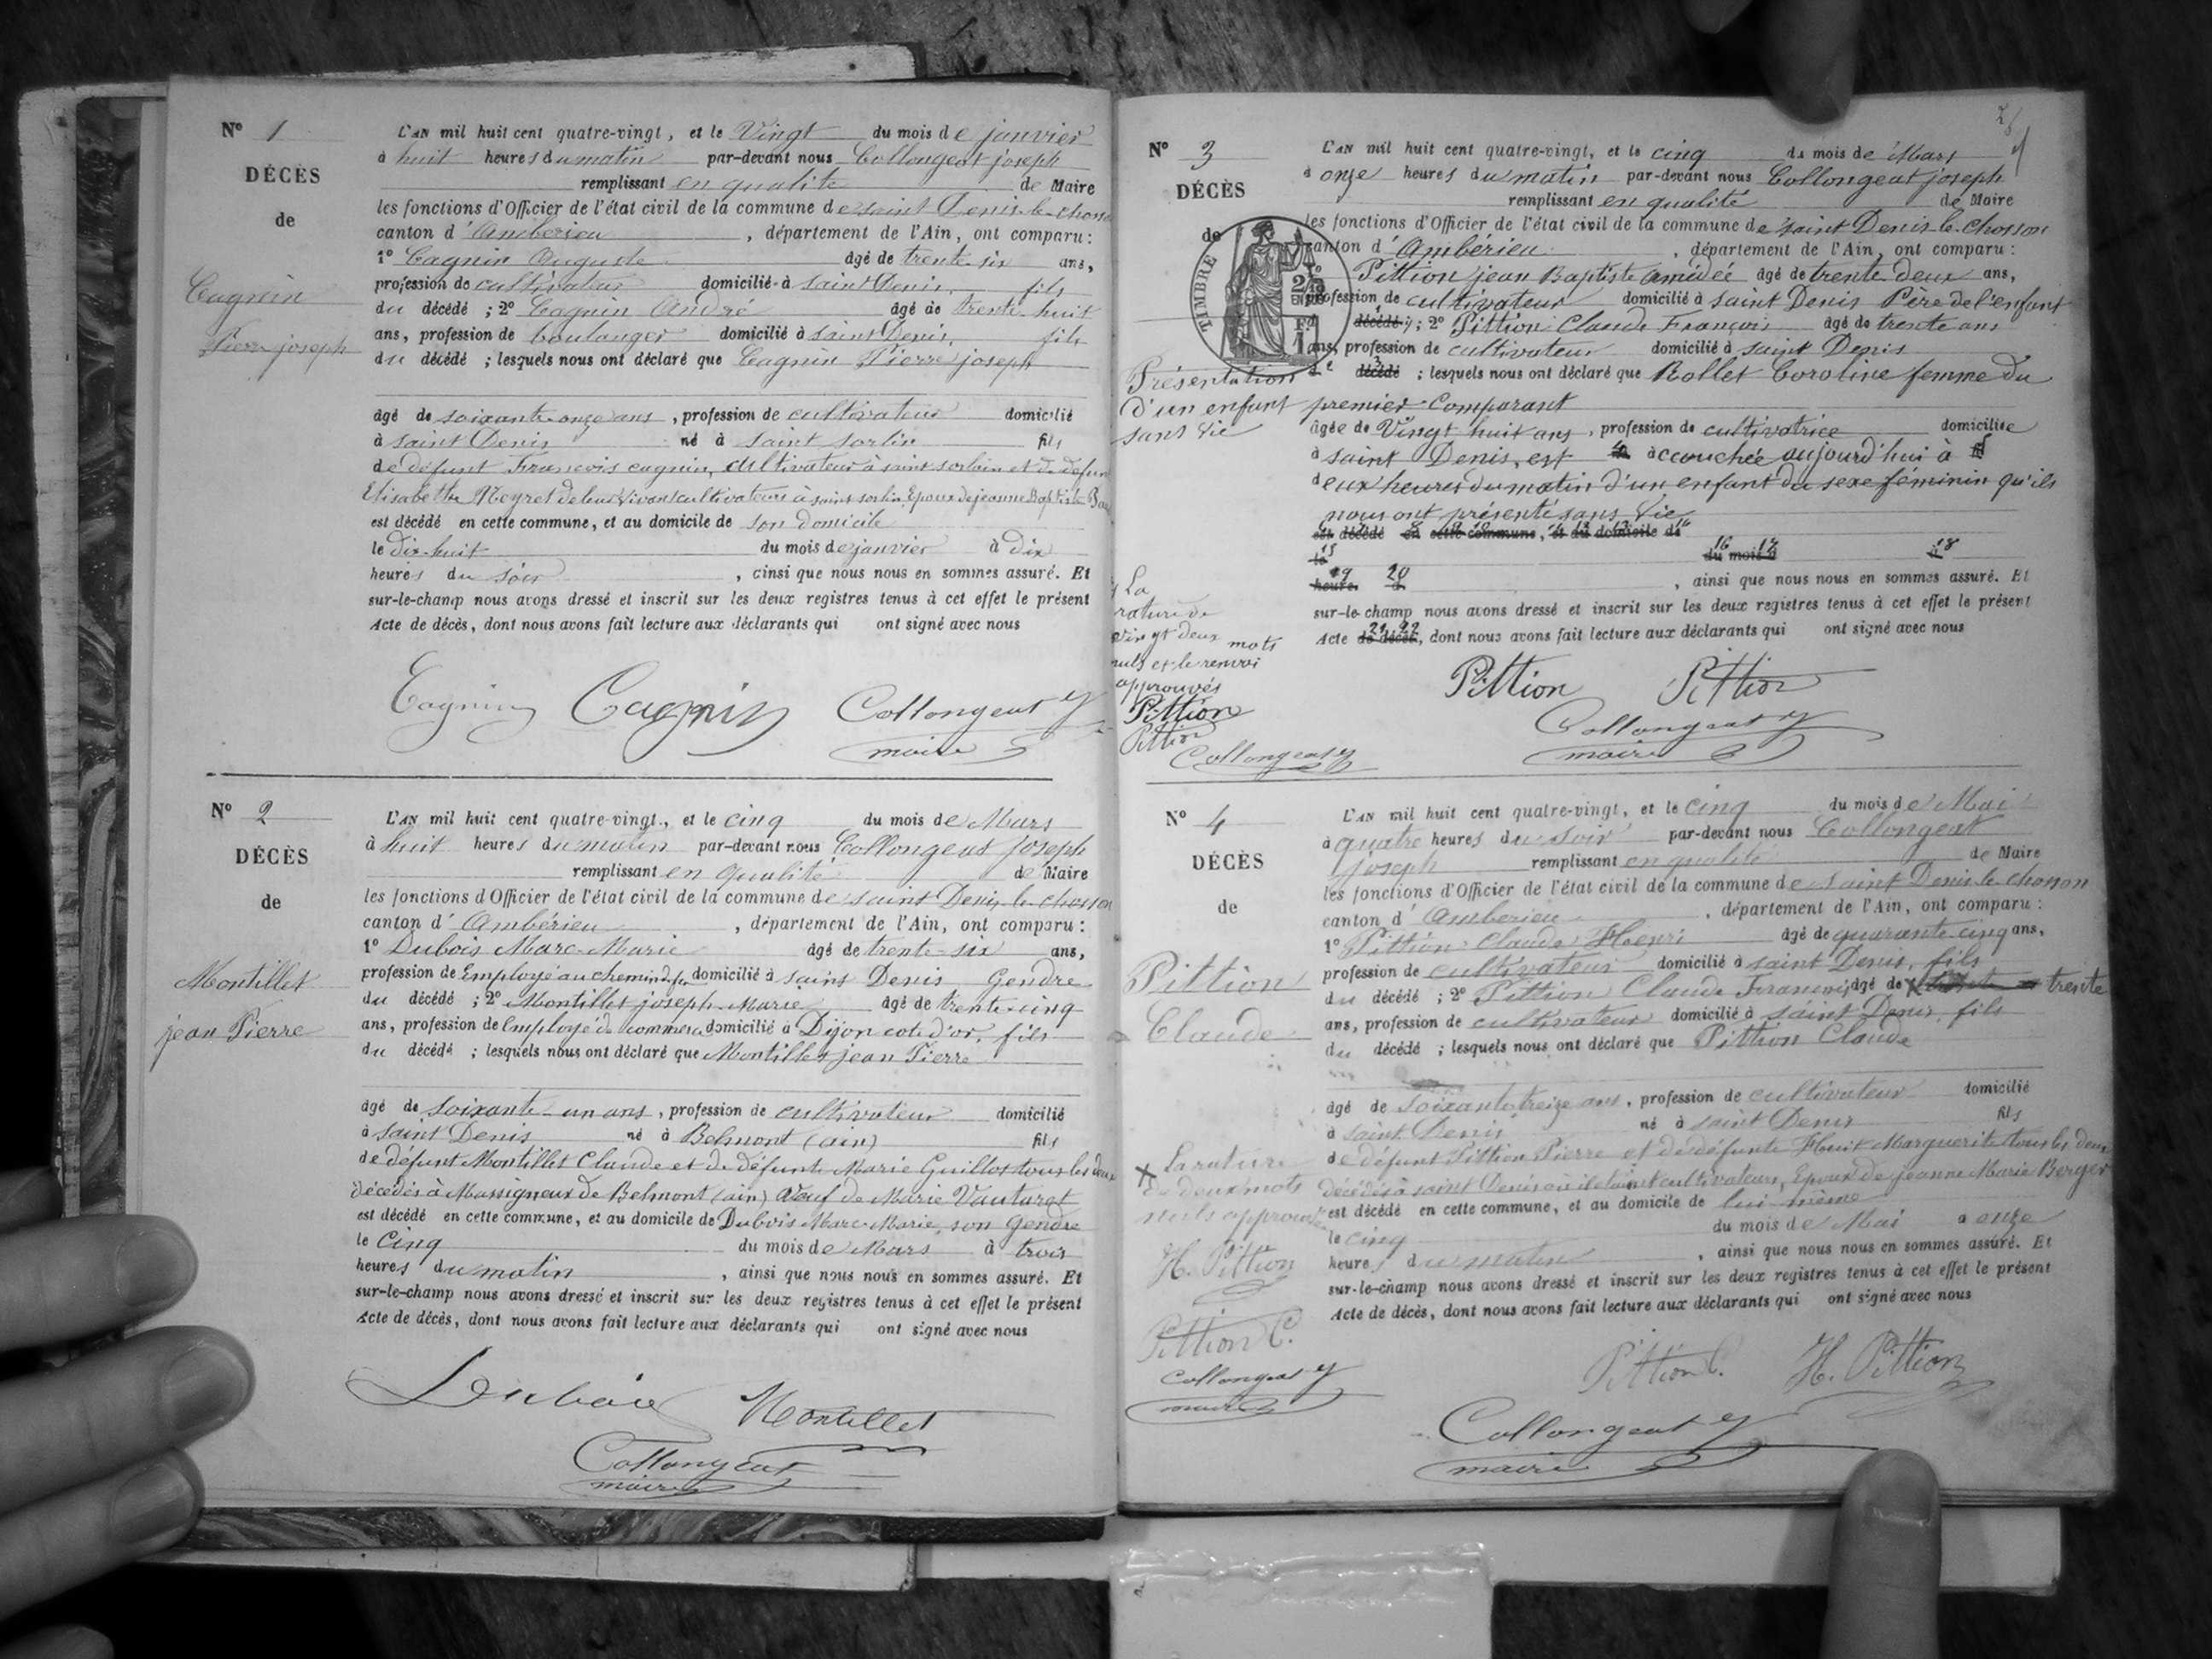 N° 1
DÉCÈS
de
Cagnin
Pierre joseph
L'AN mil huit cent quatre-vingt, et le Vingt du mois de janvier
à huit heures du matin par-devant nous Collongeat joseph
remplissant en qualité de Maire
les fonctions d'Officier de l'état civil de la commune de saint Denis-le-chosson
canton d'Amberieu, département de l'Ain, ont comparu:
1° Cagnin Auguste âgé de trente six ans,
profession de cultivateur domicilié à saint Denis, fils
du décédé ; 2° Cagnin André âgé de trente huit
ans, profession de boulanger domicilié à saint Denis, fils
du décédé ; lesquels nous ont déclaré que Cagnin Pierre joseph
âgé de soixante-onze ans, profession de cultivateur domicilié
à saint Denis né à saint sorlin fils
de défunt François cagnin, cultivateur à saint sorlin et de
Elisabeth Neyret de leur vivant cultivateurs à saint sorlin, Epoux de jeanne Baptiste
est décédé en cette commune, et au domicile de son domicile
le dix-huit du mois de janvier à dix
heures du soir, ainsi que nous nous en sommes assuré. Et
sur-le-champ nous avons dressé et inscrit sur les deux registres tenus à cet effet le présent
Acte de décès, dont nous avons fait lecture aux déclarants qui ont signé avec nous
Cagnin Cagnin Collongeat
maire
N° 2
DÉCÈS
de
Montillet
jean Pierre
L'AN mil huit cent quatre-vingt, et le cinq du mois de Mars
à huit heures du matin par-devant nous Collongeat joseph
remplissant en qualité de Maire
les fonctions d'Officier de l'état civil de la commune de saint Denis-le-chosson
canton d'Ambérieu, département de l'Ain, ont comparu:
1° Dubois Marc-Marie âgé de trente-six ans,
profession de Employé au chemin de fer domicilié à saint Denis Gendre
du décédé ; 2° Montillet joseph-Marie âgé de trente-cinq
ans, profession de Employé de commerce domicilié à Dijon cote d'or, fils
du décédé ; lesquels nous ont déclaré que Montillet jean Pierre
âgé de soixante-un ans, profession de cultivateur domicilié
à saint Denis né à Belmont (ain) fils
de défunt Montillet Claude et de défunte Marie Guillot tous les deux
décédés à Massigneux de Belmont (ain) Veuf de Marie Vautaret
est décédé en cette commune, et au domicile de Dubois Marc-Marie, son gendre
le Cinq du mois de Mars à trois
heures du matin, ainsi que nous nous en sommes assuré. Et
sur-le-champ nous avons dressé et inscrit sur les deux registres tenus à cet effet le présent
Acte de décès, dont nous avons fait lecture aux déclarants qui ont signé avec nous
Dubois Montillet
Collongeat
maire
N° 3
DÉCÈS
de
TIMBRE
Présentation
d'un enfant
sans vie
L'AN mil huit cent quatre-vingt, et le cinq du mois de Mars
à onze heures du matin par-devant nous Collongeat joseph
remplissant en qualité de Maire
les fonctions d'Officier de l'état civil de la commune de saint Denis-le-chosson
canton d'Amberieu, département de l'Ain, ont comparu:
Pittion jean Baptiste Amédée âgé de trente deux ans,
profession de cultivateur domicilié à saint Denis Père de l'enfant
décédé ; 2° Pittion Claude François âgé de trente ans
ans, profession de cultivateur domicilié à saint Denis
décédé ; lesquels nous ont déclaré que Rollet Caroline femme du
premier Comparant
âgée de Vingt huit ans, profession de cultivatrice domiciliée
à saint Denis, est accouchée aujourd'hui à
deux heures du matin d'un enfant du sexe féminin qu'ils
nous ont présenté sans vie
est décédé en cette commune, et au domicile de
le du mois d à
heure d, ainsi que nous nous en sommes assuré. Et
sur-le-champ nous avons dressé et inscrit sur les deux registres tenus à cet effet le présent
Acte de décès, dont nous avons fait lecture aux déclarants qui ont signé avec nous
La
rature de
vingt deux mots
nuls et le renvoi
approuvés
Pittion
Pittion
Collongeat
Pittion Pittion
Collongeat
maire
N° 4
DÉCÈS
de
Pittion
Claude
L'AN mil huit cent quatre-vingt, et le cinq du mois de Mai
à quatre heures du soir par-devant nous Collongeat
joseph remplissant en qualité de Maire
les fonctions d'Officier de l'état civil de la commune de saint Denis-le-chosson
canton d'Amberieu, département de l'Ain, ont comparu:
1° Pittion Claude Henri âgé de quarante-cinq ans,
profession de cultivateur domicilié à saint Denis, fils
du décédé ; 2° Pittion Claude François, âgé de trente
ans, profession de cultivateur domicilié à saint Denis, fils
du décédé ; lesquels nous ont déclaré que Pittion Claude
âgé de soixante treize ans, profession de cultivateur domicilié
à saint Denis né à saint Denis fils
de défunt Pittion Pierre et de défunte Marguerite tous les deux
décédés à saint Denis où ils étaient cultivateurs, Epoux de jeanne Marie Berger
est décédé en cette commune, et au domicile de lui-même
le cinq du mois de Mai à onze
heures du matin, ainsi que nous nous en sommes assuré. Et
sur-le-champ nous avons dressé et inscrit sur les deux registres tenus à cet effet le présent
Acte de décès, dont nous avons fait lecture aux déclarants qui ont signé avec nous
La rature
de deux mots
nuls approuvée
H. Pittion
Pittion C.
Collongeat
maire
Pittion C. H. Pittion
Collongeat
maire